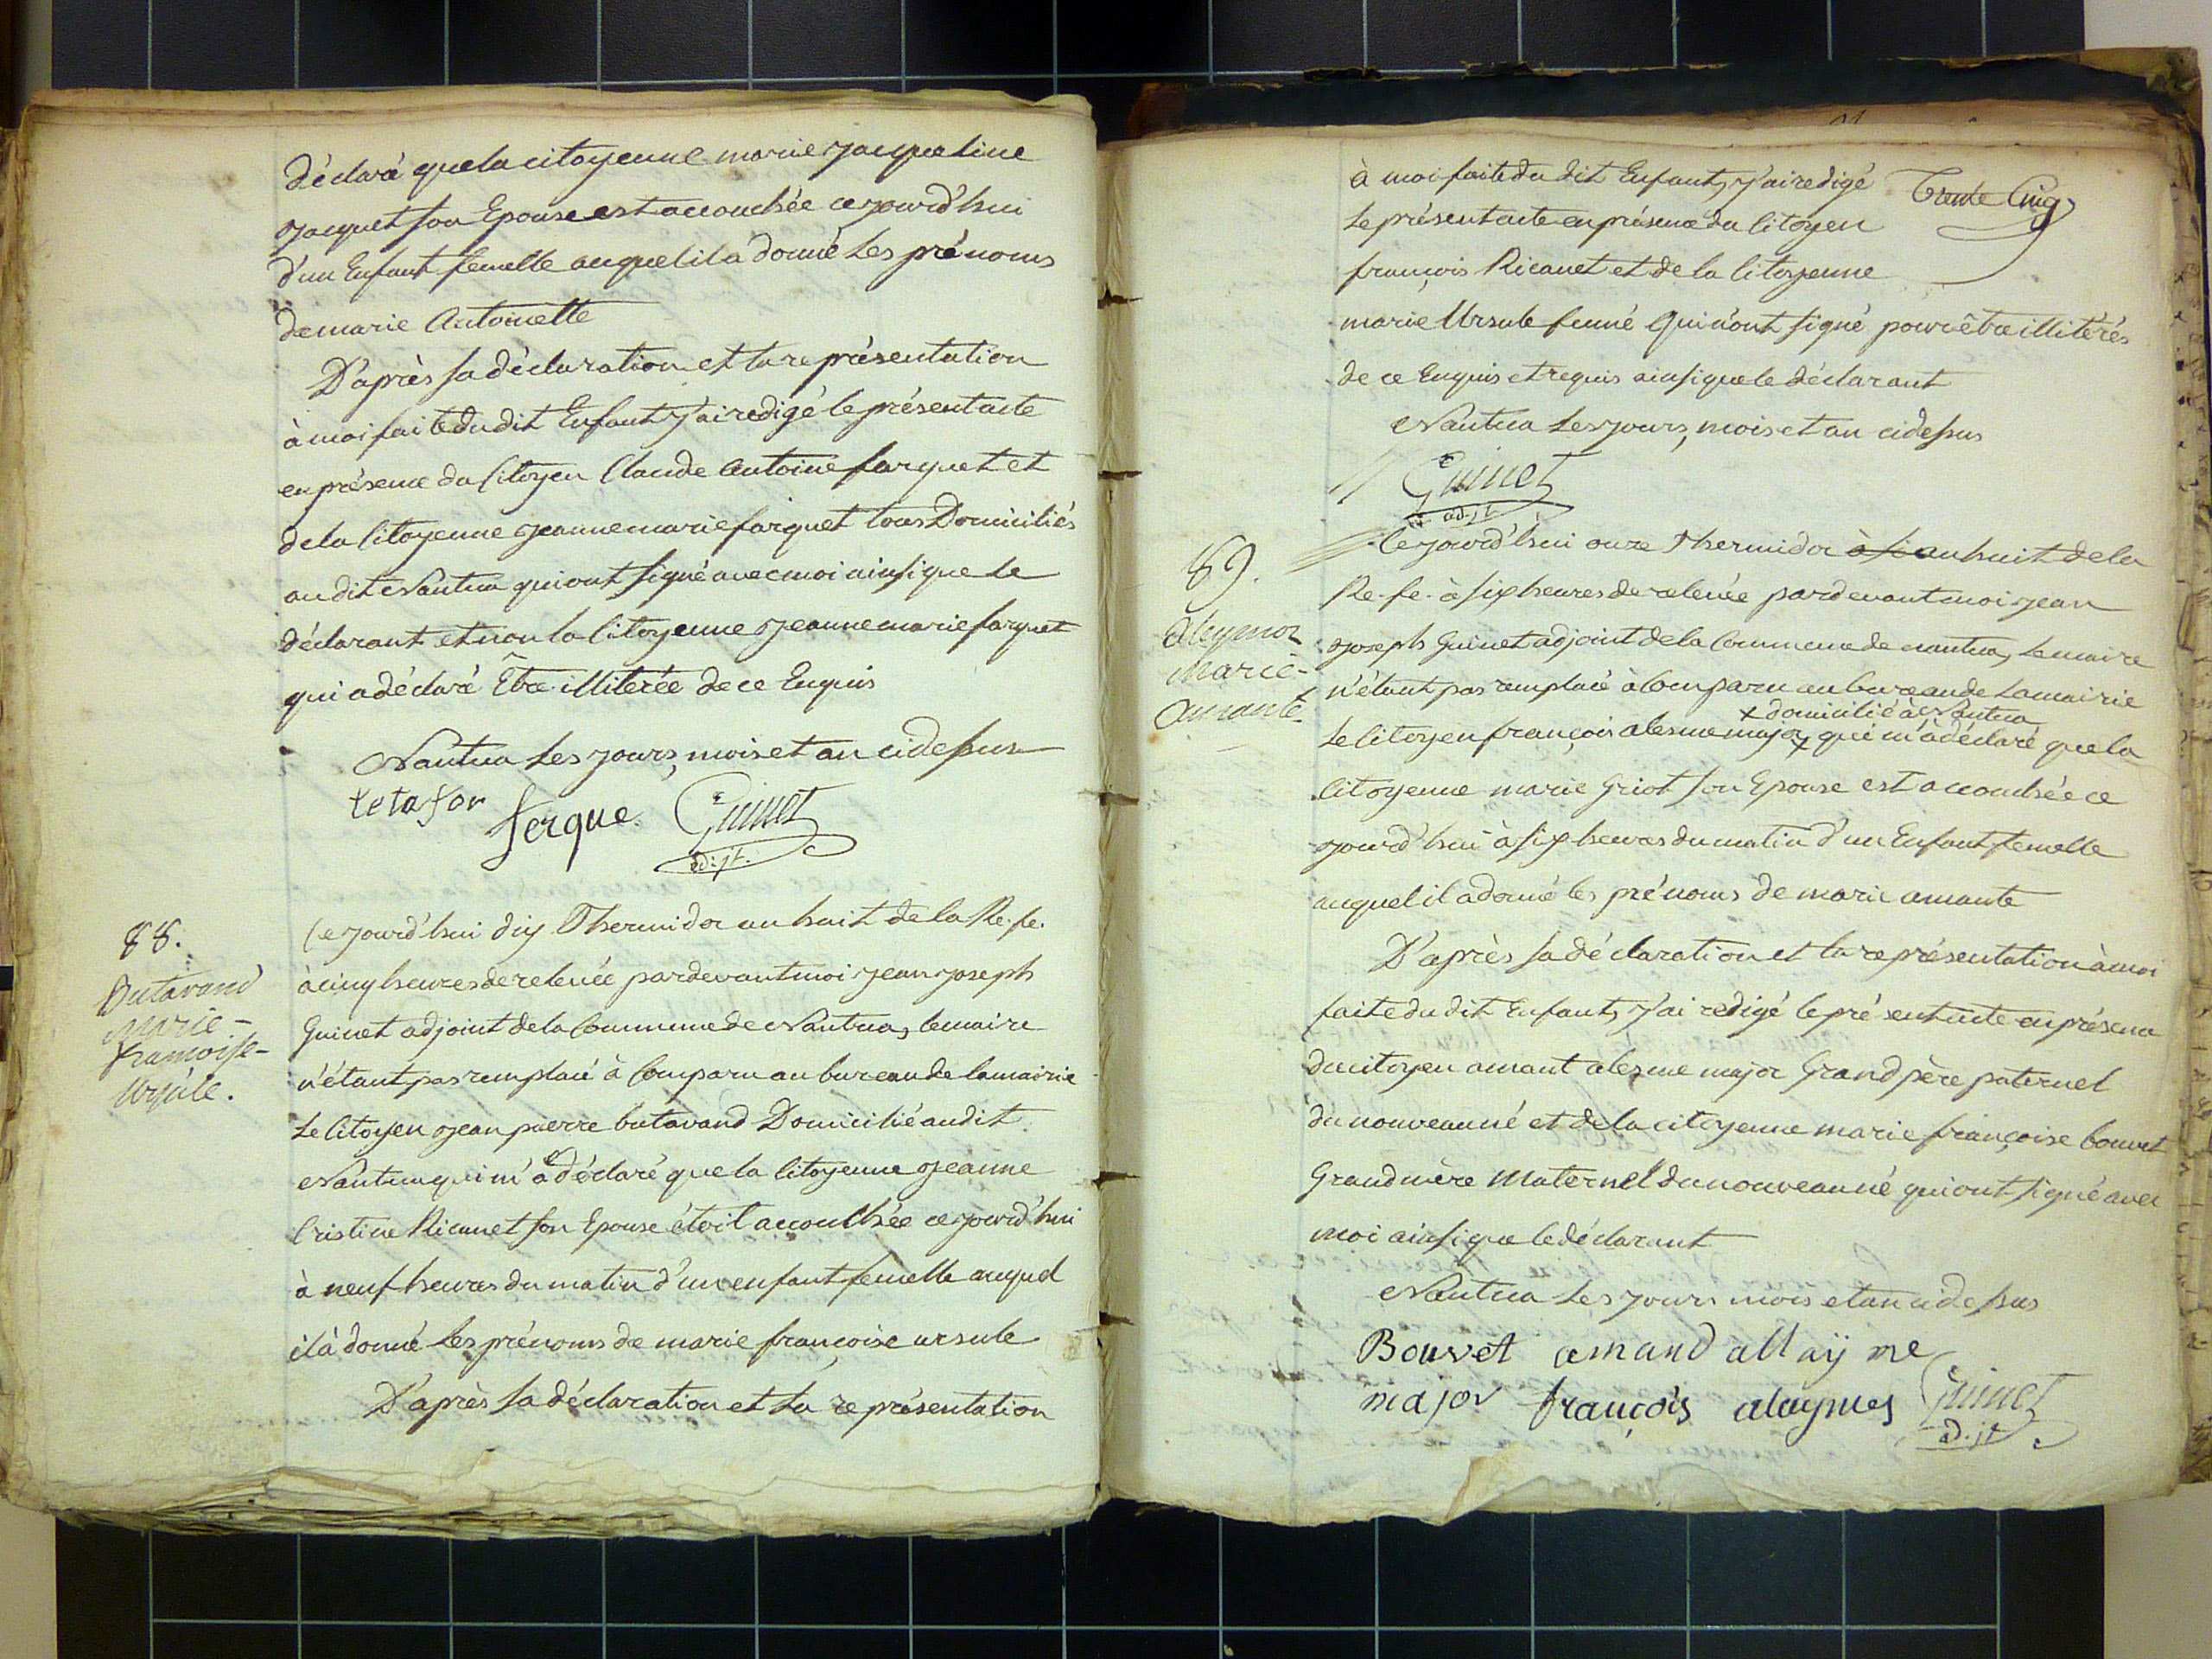 déclaré que la citoyenne marie jacqueline
jacquet son Epouse est accouchée ce jourd'hui
d'un Enfant femelle auquel il a donné les prénoms
de marie Antoinette
D'après sa déclaration et la représentation
à moi faite du dit Enfant j'ai redigé le présent acte
en présence du Citoyen Claude Antoine farquet et
de la Citoyenne jeanne marie farquet tous Domiciliés
au dit Nantua qui ont signé avec moi ainsi que le
déclarant et non la Citoyenne jeanne marie farquet
qui a déclaré Être illiterée de ce Enquis
Nantua les jours, mois et an cidessus
ferque Guinet
adjt.
88.
Butavand
marie-
francoise-
ursule.
Ce jourd'hui dix Thermidor an huit de la Re. fe.
à cinq heures de relevée pardevant moi jean joseph
Guinet adjoint de la Commune de Nantua, le maire
n'étant pas remplacé à Comparu au bureau de la mairie
le Citoyen jean pierre butavand Domicilié audit
Nantua qui m'a déclaré que la Citoyenne jeanne
Cristine Ricanet son Epouse étoit accouchée ce jourd'hui
à neuf heures du matin d'un enfant femelle auquel
il à donné les prénoms de marie françoise ursule
D'après sa déclaration et la représentation
Trente Cinq
à moi faite du dit Enfant, j'ai redigé
le présent acte en présence du Citoyen
françois Ricanet et de la Citoyenne
marie Ursule qui n'ont signé pour être illitérés
de ce Enquis et requis ainsi que le déclarant
Nantua les jours, mois et an cidessus
Guinet
adjt
89.
marie-
amante.
Ce jourd'hui onze Thermidor à si an huit de la
Re. fe. à six heures de relevée pardevant moi jean
joseph Guinet adjoint de la Commune de nantua, le maire
n'étant pas remplacé à Comparu au bureau de la mairie
x domicilié à Nantua
le Citoyen françois alesme major x qui m'à déclaré que la
Citoyenne marie Griot son Epouse est accouchée ce
jourd'hui à six heures du matin d'un Enfant femelle
auquel il a donné les prénoms de marie amante
D'après sa déclaration et la représentation à moi
faite du dit Enfant, j'ai redigé le présent acte en présence
du citoyen amant alesme major Grand père paternel
du nouveau né et de la citoyenne marie françoise bouvet
Grand mère Maternel du nouveau né qui ont signé avec
moi ainsi que le déclarant
Nantua les jours mois et an cidessus
Bouvet amand allaÿme
major françois alaymes Guinet
adjt